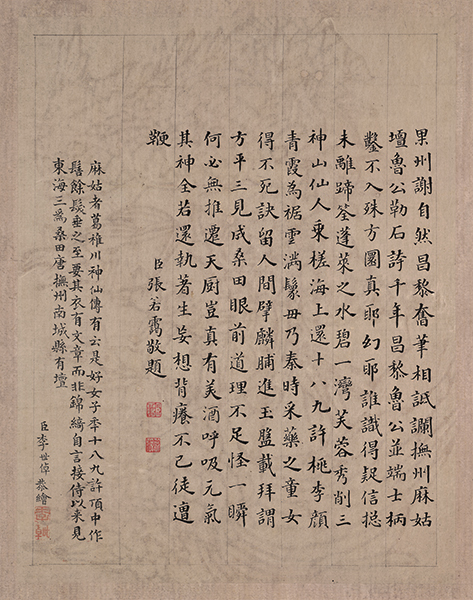 果州謝自然昌黎奮筆相詆讕撫州麻姑
壇魯公勒石誇千年昌黎魯公並端士柄
鑿不入殊方圜真耶幻耶誰識得疑信捴
未離蹄筌蓬萊之水碧一灣芙蓉秀削三
神山仙人乘槎海上還十八九許桃李顏
青霞為裾雲滿鬟毋乃秦時采藥之童女
得不死訣留人間擘麟脯進玉盤載拜謂
方平三見成桑田眼前道理不足怪一瞬
何必無推遷天厨豈真有美酒呼吸元氣
其神全若還執著生妄想背癢不已徒遭
鞭
臣張若靄敬題
麻姑者葛稚川神仙傳有云是好女子年十八九許頂中作
髻餘髮垂之至要其衣有文章而非錦綺自言接侍以來見
東海三爲桑田唐撫州南城縣有壇
臣李世倬恭繪